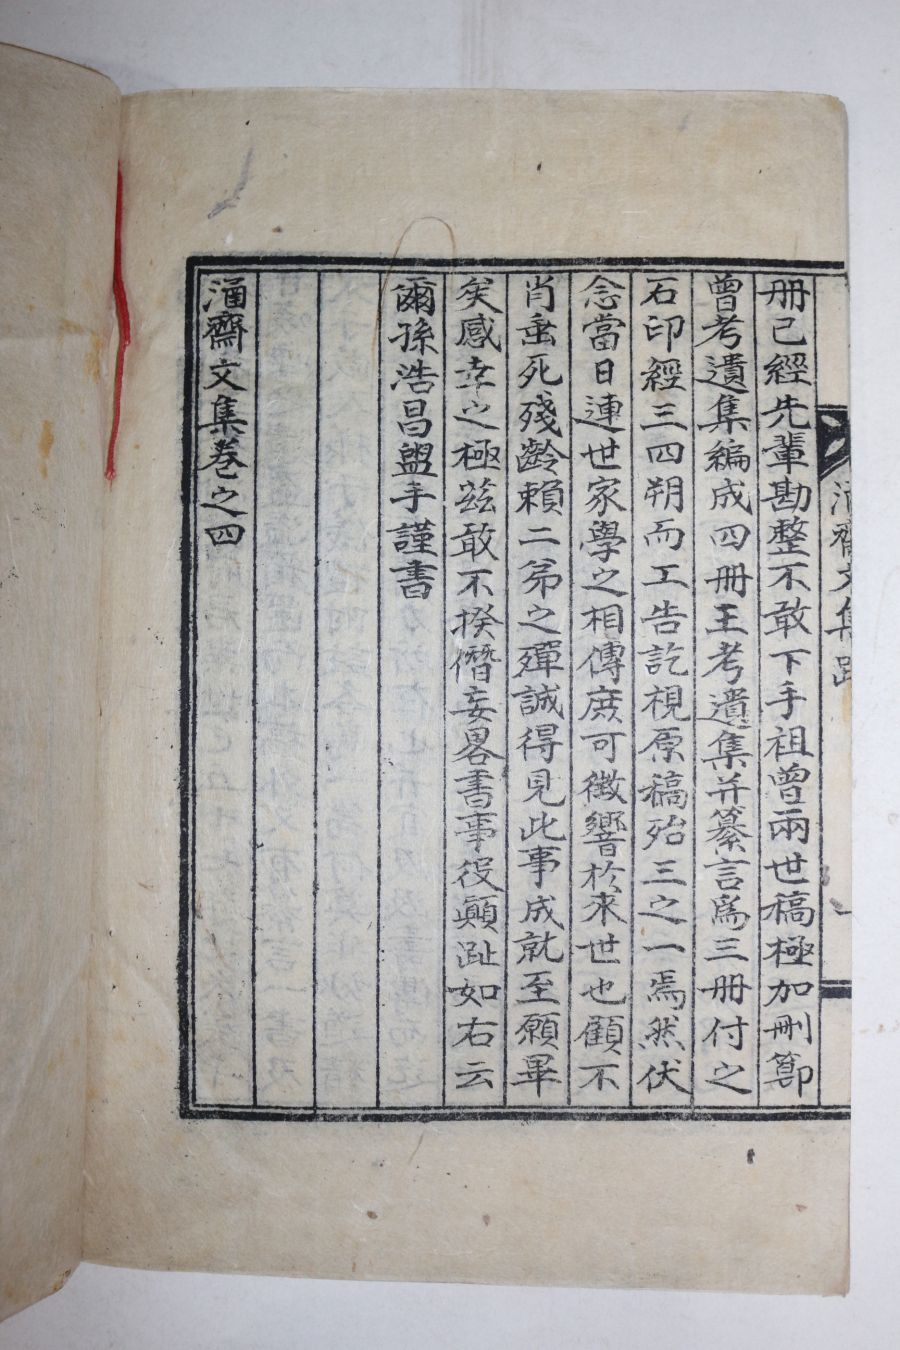 涌齋文集 跋
册已經先輩勘整不敢下手祖曾兩世稿極加刪節
曾考遺集編成四册王考遺集并纂言爲三册付之
石印經三四朔而工告訖視原稿殆三之一焉然伏
念當日連世家學之相傳庶可徵響於來世也顧不
肖垂死殘齡賴二弟之殫誠得見此事成就至願畢
矣感幸之極茲敢不揆僭妄畧書事役顚趾如右云
爾孫浩昌盥手謹書
涌齋文集卷之四